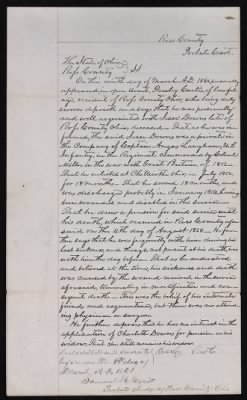 Ross County
Probate Court
The State of Ohio
Ross County Ss
On this ninth day of March A.D. 1861 personally
appeared in open Court, Presley a
resident of Ross County Ohio, who being duly
sworn deposeth and says that he was personally
and well acquainted with Isaac Downs late of
Ross County Ohio, deceased That as he was in-
formed, the said Isaac Downs was a private in
the Company of Captain Angus Langham,
Infantry, in the Regiment Commanded by Colonel
Miller in the war with Great Britain of 1812
That he enlisted at Chillicothe Ohio in July 1812
for 18 months. That he served 18 months, and
was discharged probably in January 1814, having
been wounded and disabled in the service
That he drew a pension for said service until
his death, which occurred in Ross County afore-
said on the 11th day of August 1828. He fur-
ther says that he was frequently with him during his
last sickness and though not present when he died was
with him the day before. That as he understood
and believed at the time, his sickness and death
was caused by the wound received in the service
aforesaid, terminating in mortification and con-
sequent death. This was the belief of his intimate
friends and acquaintances, but there was no attend-
ing physician or surgeon
He further deposes that he has no interest in the
application of Charlotte Downs for pension as his
widow, That she still remains his widow
Subscribed and sworn to
before me this 9th day of
March A.D. 1861
Probate Judge of Ross County Ohio